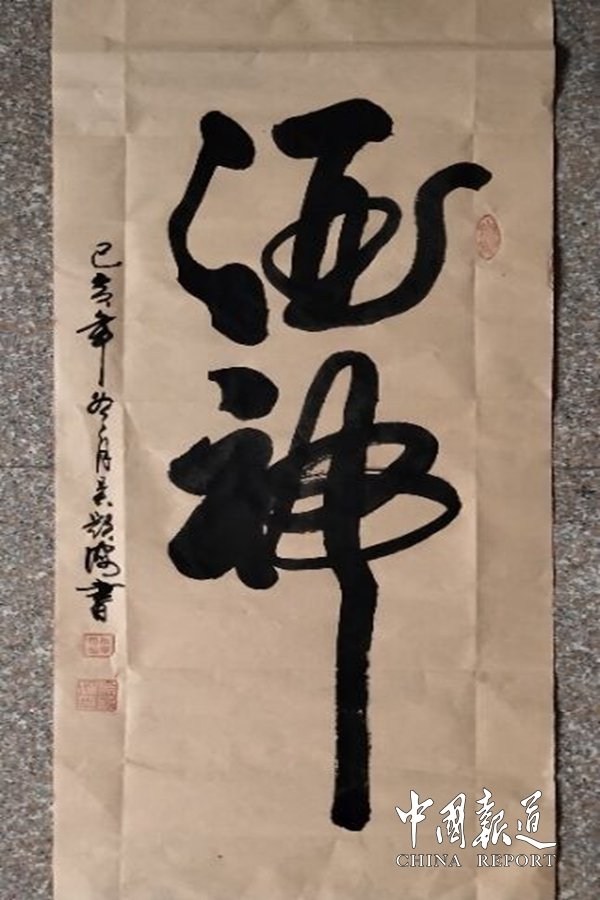 酒神
己亥年冬月吴 書
中國報道
CHINA REPORT